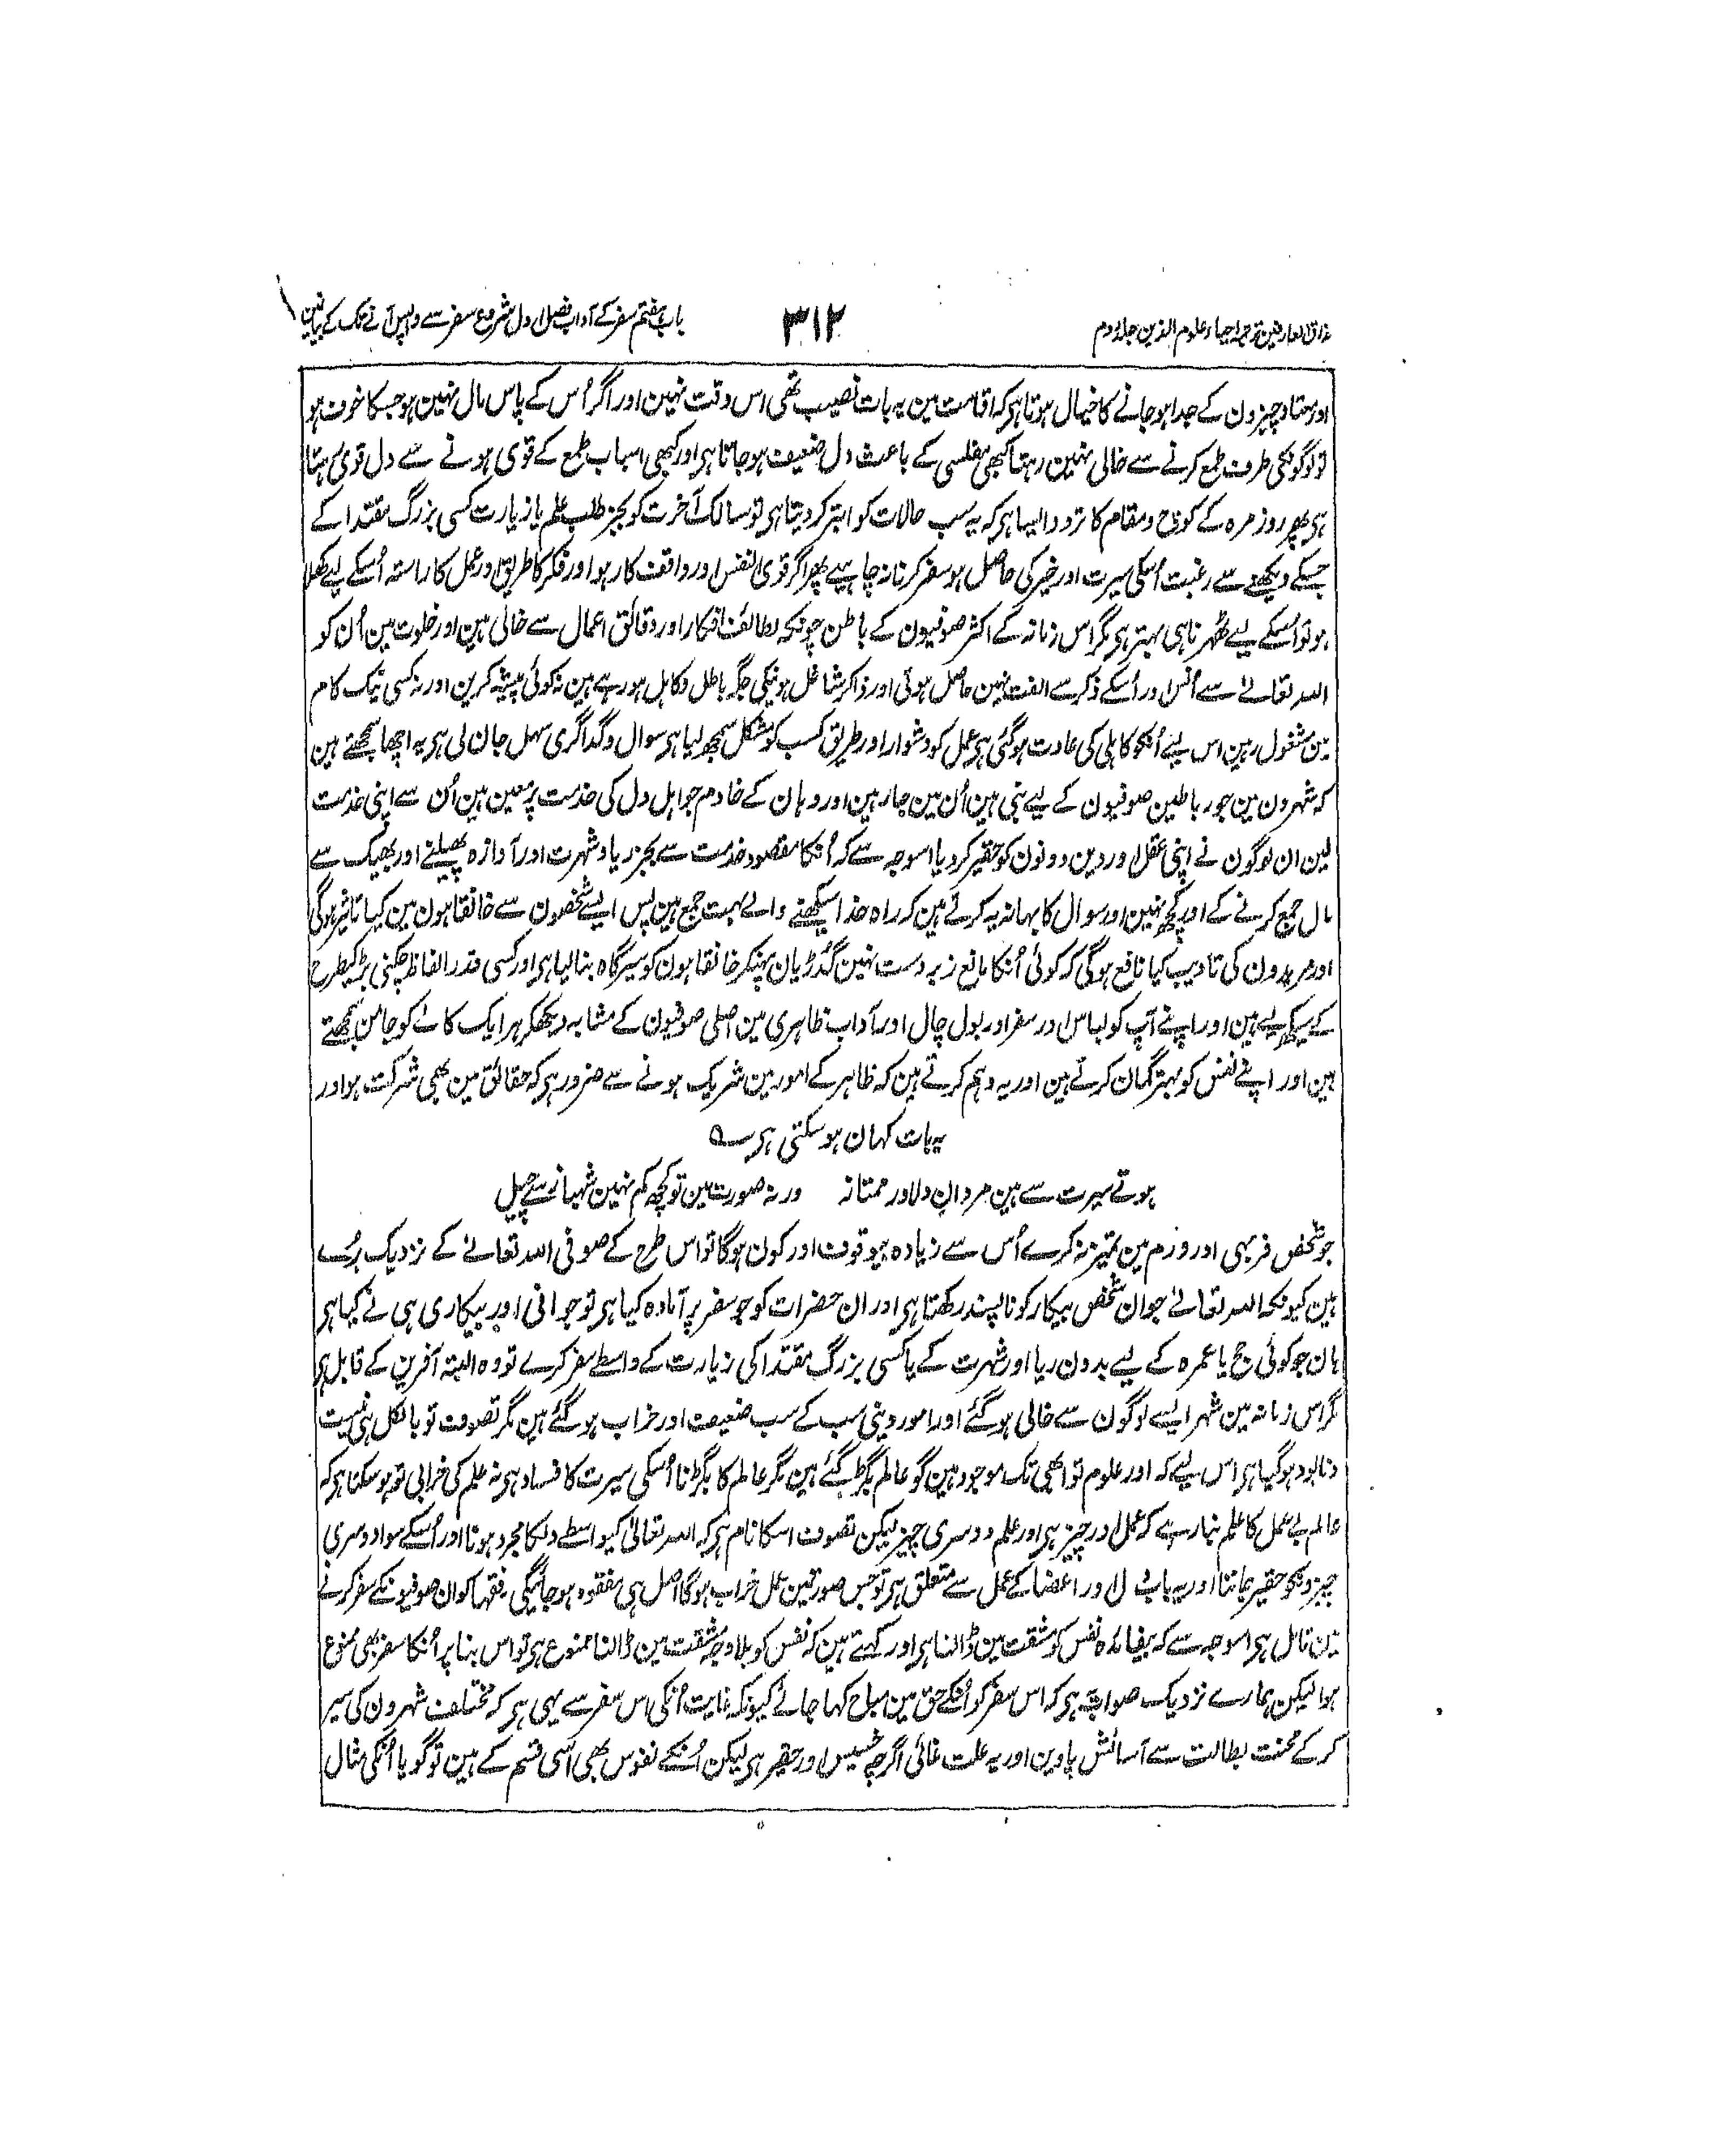 مذاق العارفین ترجمہ احیاء علوم الدین جلد دوم
۳۱۲
باب ہفتم سفر کے آداب فصل اول شروع سفر سے واپس آنے تک کے بیان مین
اور معتاد چیزون کے جدا ہو جانے کا خیال ہوتا ہی کہ اقامت مین یہ بات نصیب تھی اس وقت نہین اور اگر اُس کے پاس مال نہین ہو جسکا خوف ہو
تو لوگونکی طرف طمع کرنے سے خالی نہین رہتا کبھی مفلسی کے باعث دل ضعیف ہو جاتا ہی اور کبھی اسباب طمع کے قوی ہونے سے دل قوی رہتا
ہی پھر روز مرہ کے کوچ و مقام کا تردد ایسا ہی کہ یہ سب حالات کو ابتر کر دیتا ہی تو سالک آخرت کو بجز طلب علم یا زیارت کسی بزرگ مقتدا کے
جسکے دیکھنے سے رغبت اُسکی سیرت اور خیر کی حاصل ہو سفر کرنا نہ چاہیے پھر اگر قوی النفس اور واقف کار ہو اور فکر کا طریق اور عمل کا راستہ اُسکے لیے کھلا
ہو تو اُسکے لیے ٹھہرنا ہی بہتر ہی مگر اس زمانہ کے اکثر صوفیون کے باطن چونکہ لطائف افکار اور دقائق اعمال سے خالی ہین اور خلوت مین اُن کو
اللہ تعالےٰ سے اُنس اور اُسکے ذکر سے الفت نہین حاصل ہوئی اور ذاکر شاغل ہونیکی جگہ باطل و کاہل ہو رہے ہین نہ کوئی پیشہ کرین اور نہ کسی نیک کام
مین مشغول رہین اس لیے اُنکو کاہلی کی عادت ہو گئی ہی عمل کو دشوار اور طریق کسب کو مشکل سمجھ لیا ہی سوال و گداگری سہل جان لی ہی یہ اچھا سمجھتے ہین
کہ شہرون مین جو رباطین صوفیون کے لیے بنی ہین اُن مین جا رہین اور وہان کے خادم جو اہل دل کی خدمت پر معین ہین اُن سے اپنی خدمت
لین ان لوگون نے اپنی عقل اور دین دونون کو حقیر کر دیا اسوجہ سے کہ اُنکا مقصود خدمت سے بجز ریا و شہرت اور آوازہ پھیلنے اور بھیک سے
مال جمع کرنے کے اور کچھ نہین اور سوال کا بہانہ یہ کرتے ہین کہ راہ خدا سیکھنے والے بہت جمع ہین پس ایسے شخصون سے خانقاہون مین کیا تاثیر ہوگی
اور مریدون کی تادیب کیا نافع ہوگی کہ کوئی اُنکا مانع زبردست نہین گڈریان پہنکر خانقاہون کو سیرگاہ بنا لیا ہی اور کسی قدر الفاظ چکنی بڑ کیطرح
کے سیکھ لیے ہین اور اپنے آپ کو لباس اور سفر اور بول چال اور آداب ظاہری مین اصلی صوفیون کے مشابہ دیکھکر ہر ایک کالے کو جامن سمجھتے
ہین اور اپنے نفس کو بہتر گمان کرتے ہین اور یہ وہم کرتے ہین کہ ظاہر کے امور مین شریک ہونے سے ضرور ہی کہ حقائق مین بھی شرکت ہو اور
یہ بات کہان ہو سکتی ہی ؎
ہوتے سیرت سے ہین مردان دلاور ممتاز ورنہ صورت مین تو کچھ کم نہین شہباز سے چیل
جو شخص فربہی اور ورم مین تمیز نہ کرے اُس سے زیادہ بیوقوف اور کون ہوگا تو اس طرح کے صوفی اللہ تعالےٰ کے نزدیک بُرے
ہین کیونکہ اللہ تعالےٰ جوان شخص بیکار کو ناپسند رکھتا ہی اور ان حضرات کو جو سفر پر آمادہ کیا ہی تو جوانی اور بیکاری ہی نے کیا ہی
ہان جو کوئی حج یا عمرہ کے لیے بدون ریا اور شہرت کے یا کسی بزرگ مقتدا کی زیارت کے واسطے سفر کرے تو وہ البتہ آفرین کے قابل ہی
مگر اس زمانہ مین شہر ایسے لوگون سے خالی ہو گئے اور امور دینی سب کے سب ضعیف اور خراب ہو گئے ہین مگر تصوف تو بالکل ہی نیست
و نابود ہو گیا ہی اس لیے کہ اور علوم تو ابھی تک موجود ہین گو عالم بگڑ گئے ہین مگر عالم کا بگڑنا اُسکی سیرت کا فساد ہی نہ علم کی خرابی تو ہو سکتا ہی کہ
عالم بے عمل کا علم بنا رہے کہ عمل اور چیز ہی اور علم دوسری چیز لیکن تصوف اسکا نام ہی کہ اللہ تعالیٰ کیواسطے دلکا مجرد ہونا اور اُسکے سوا دوسری
چیزونکو حقیر جاننا اور یہ بات دل اور اعضا کے عمل سے متعلق ہی تو جس صورتمین عمل خراب ہوگا اصل ہی مفقود ہو جائیگی فقہا کو ان صوفیونکے سفر کرنے
مین تامل ہی اسوجہ سے کہ بیفائدہ نفس کو مشقت مین ڈالنا ہی اور کہتے ہین کہ نفس کو بلا وجہ مشقت مین ڈالنا ممنوع ہی تو اس بنا پر اُنکا سفر بھی ممنوع
ہوا لیکن ہمارے نزدیک صواب یہ ہی کہ اس سفر کو اُنکے حق مین مباح کہا جائے کیونکہ غایت اُنکی اس سفر سے یہی ہی کہ مختلف شہرون کی سیر
کر کے محنت بطالت سے آسائش پاوین اور یہ علت غائی اگرچہ خسیس اور حقیر ہی لیکن اُنکے نفوس بھی اُسی قسم کے ہین تو گویا اُنکی مثال